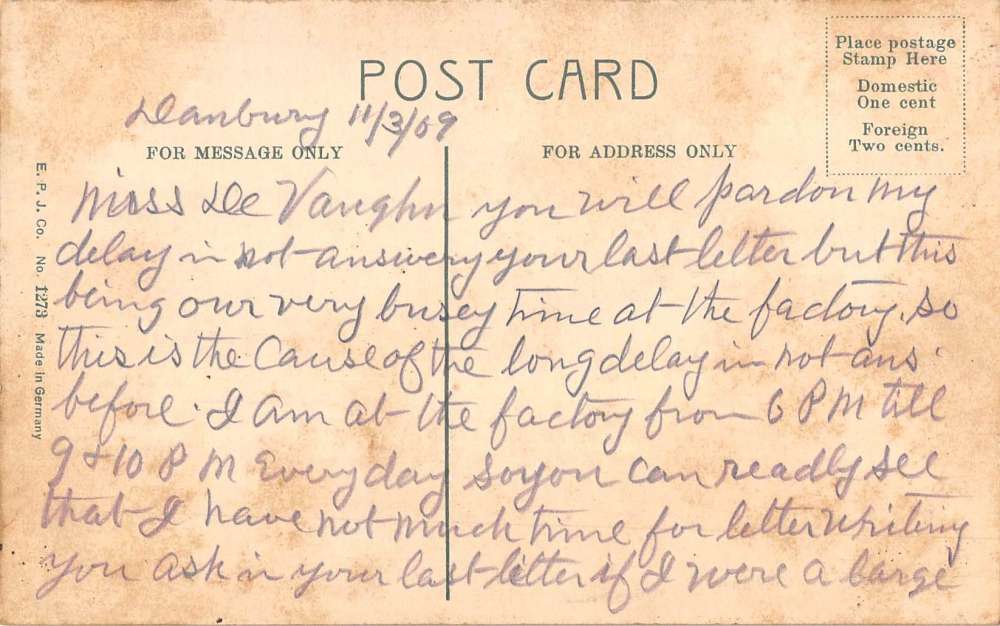 Place postage
Stamp Here
Domestic
One cent
Foreign
Two cents.
POST CARD
Danbury 11/3/09
FOR MESSAGE ONLY
FOR ADDRESS ONLY
E. P. J. Co. No. 1273 Made in Germany
Miss De Vaughn you will pardon my
delay in not answery your last letter but this
being our very busey time at the factory, so
this is the Cause of the long delay in not ans
before. I am at the factory from 6 PM till
9 & 10 P M Every day so you can readly see
that I have not much time for letter writing
you ask in your last letter if I were a large